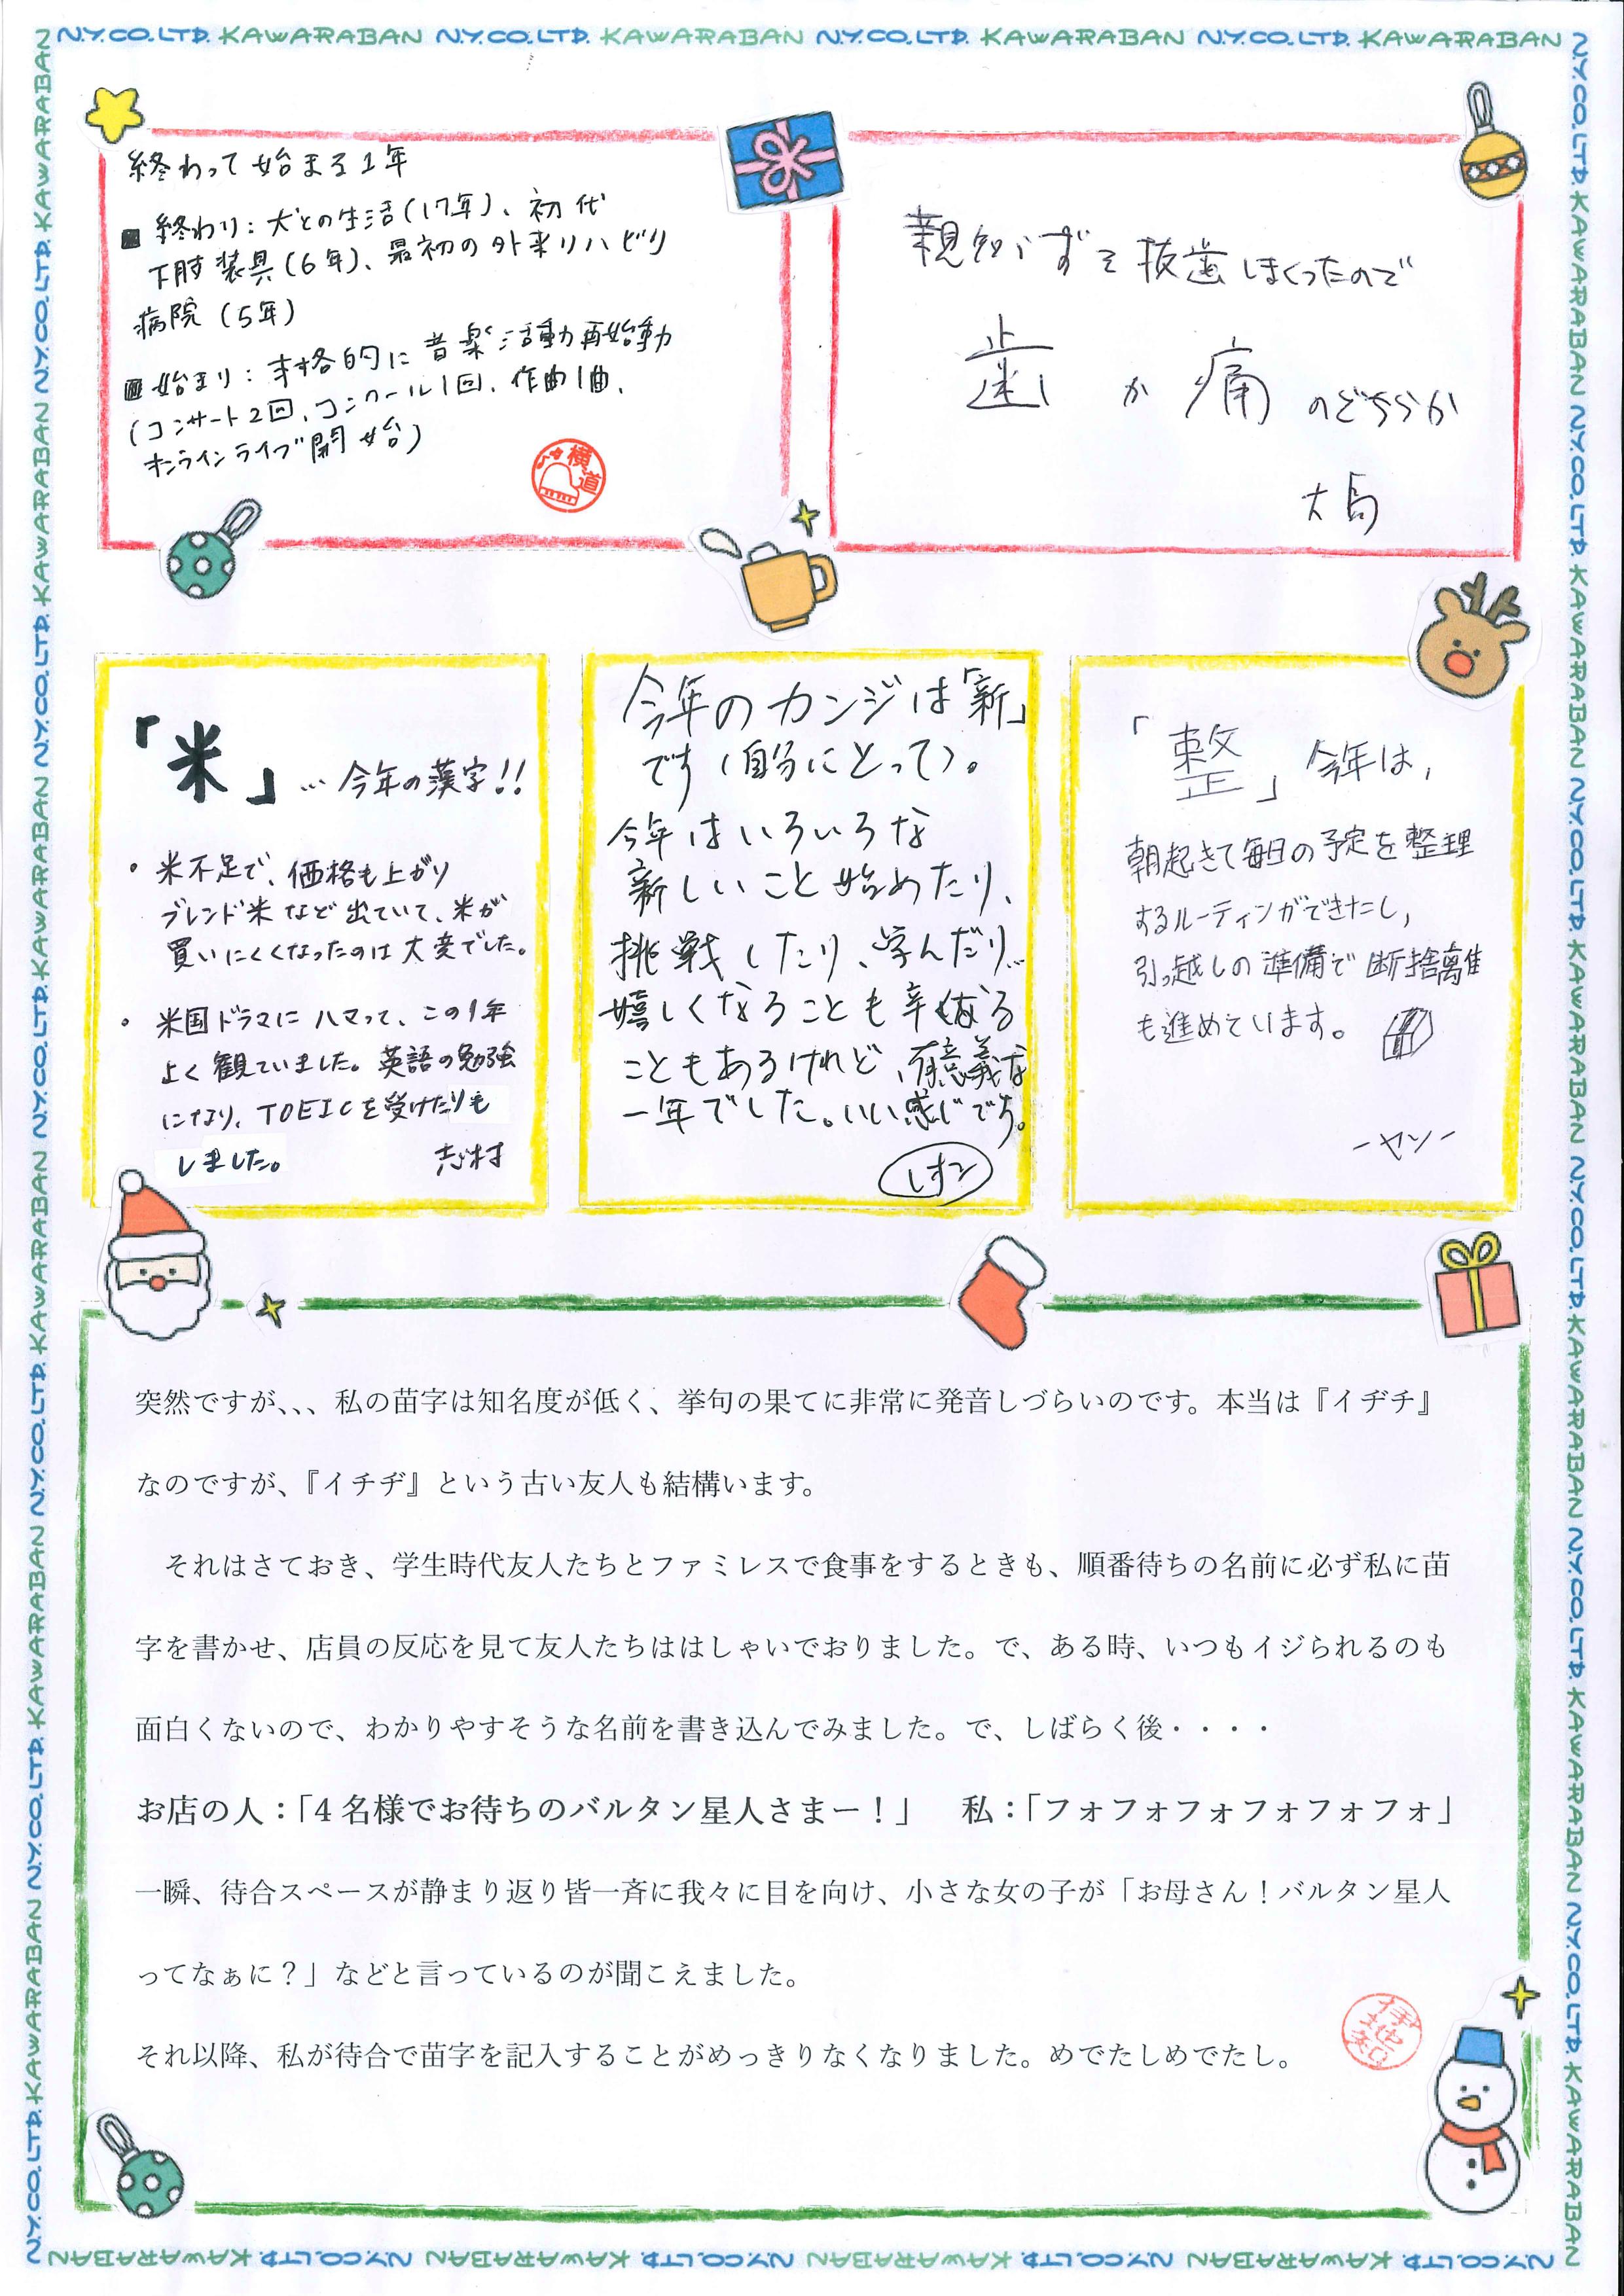 N.Y.CO.LTD. KAWARABAN N.Y.CO.LTD. KAWARABAN N.Y.CO.LTD. KAWARABAN N.Y.CO.LTD. KAWARABAN
終わって始まる1年
■ 終わり：犬との生活(17年)、初代
下肢装具(6年)、最初の外来リハビリ
病院(5年)
■ 始まり：本格的に音楽活動再始動
(コンサート2回、コンクール1回、作曲1曲、
オンラインライブ開始)
横道
親知らずを抜歯しまくったので
歯 か 痛 のどちらか
大島
「米」… 今年の漢字!!
・ 米不足で、価格も上がり
ブレンド米など出ていて、米が
買いにくくなったのは大変でした。
・ 米国ドラマにハマって、この1年
よく観ていました。英語の勉強
になり、TOEICを受けたりも
しました。 志村
今年のカンジは「新」
です(自分にとって)。
今年はいろいろな
新しいこと始めたり、
挑戦したり、学んだり、
嬉しくなることも辛くなる
こともあるけれど、有意義な
一年でした。いい感じです。
レオン
「整」今年は、
朝起きて毎日の予定を整理
するルーティンができたし、
引っ越しの準備で断捨離
も進めています。
－ヤン－
突然ですが、、、私の苗字は知名度が低く、挙句の果てに非常に発音しづらいのです。本当は『イヂチ』
なのですが、『イチヂ』という古い友人も結構います。
それはさておき、学生時代友人たちとファミレスで食事をするときも、順番待ちの名前に必ず私に苗
字を書かせ、店員の反応を見て友人たちははしゃいでおりました。で、ある時、いつもイジられるのも
面白くないので、わかりやすそうな名前を書き込んでみました。で、しばらく後・・・・
お店の人：「4 名様でお待ちのバルタン星人さまー！」　私：「フォフォフォフォフォフォ」
一瞬、待合スペースが静まり返り皆一斉に我々に目を向け、小さな女の子が「お母さん！バルタン星人
ってなぁに？」などと言っているのが聞こえました。
それ以降、私が待合で苗字を記入することがめっきりなくなりました。めでたしめでたし。